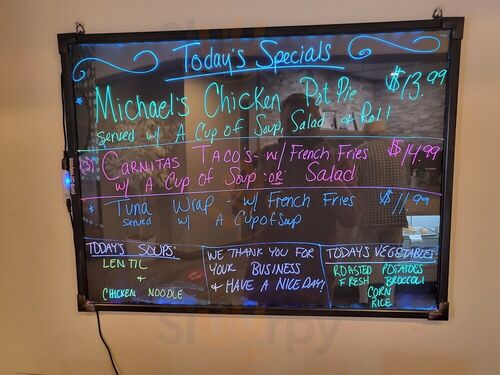 Today's Specials
Michael's Chicken Pot Pie $13.99
served w/ A Cup of Soup, Salad & Roll
(3) CARNITAS TACO'S - w/ French Fries $14.99
w/ A Cup of Soup "OR" Salad
* Tuna Wrap - w/ French Fries $11.99
SERVED w/ A Cup of Soup
TODAY'S SOUPS:
LENTIL
&
CHICKEN NOODLE
WE THANK YOU FOR
YOUR BUSINESS
& HAVE A NICE DAY!
TODAY'S VEGETABLES
ROASTED POTATOES
FRESH BROCCOLI
CORN
RICE